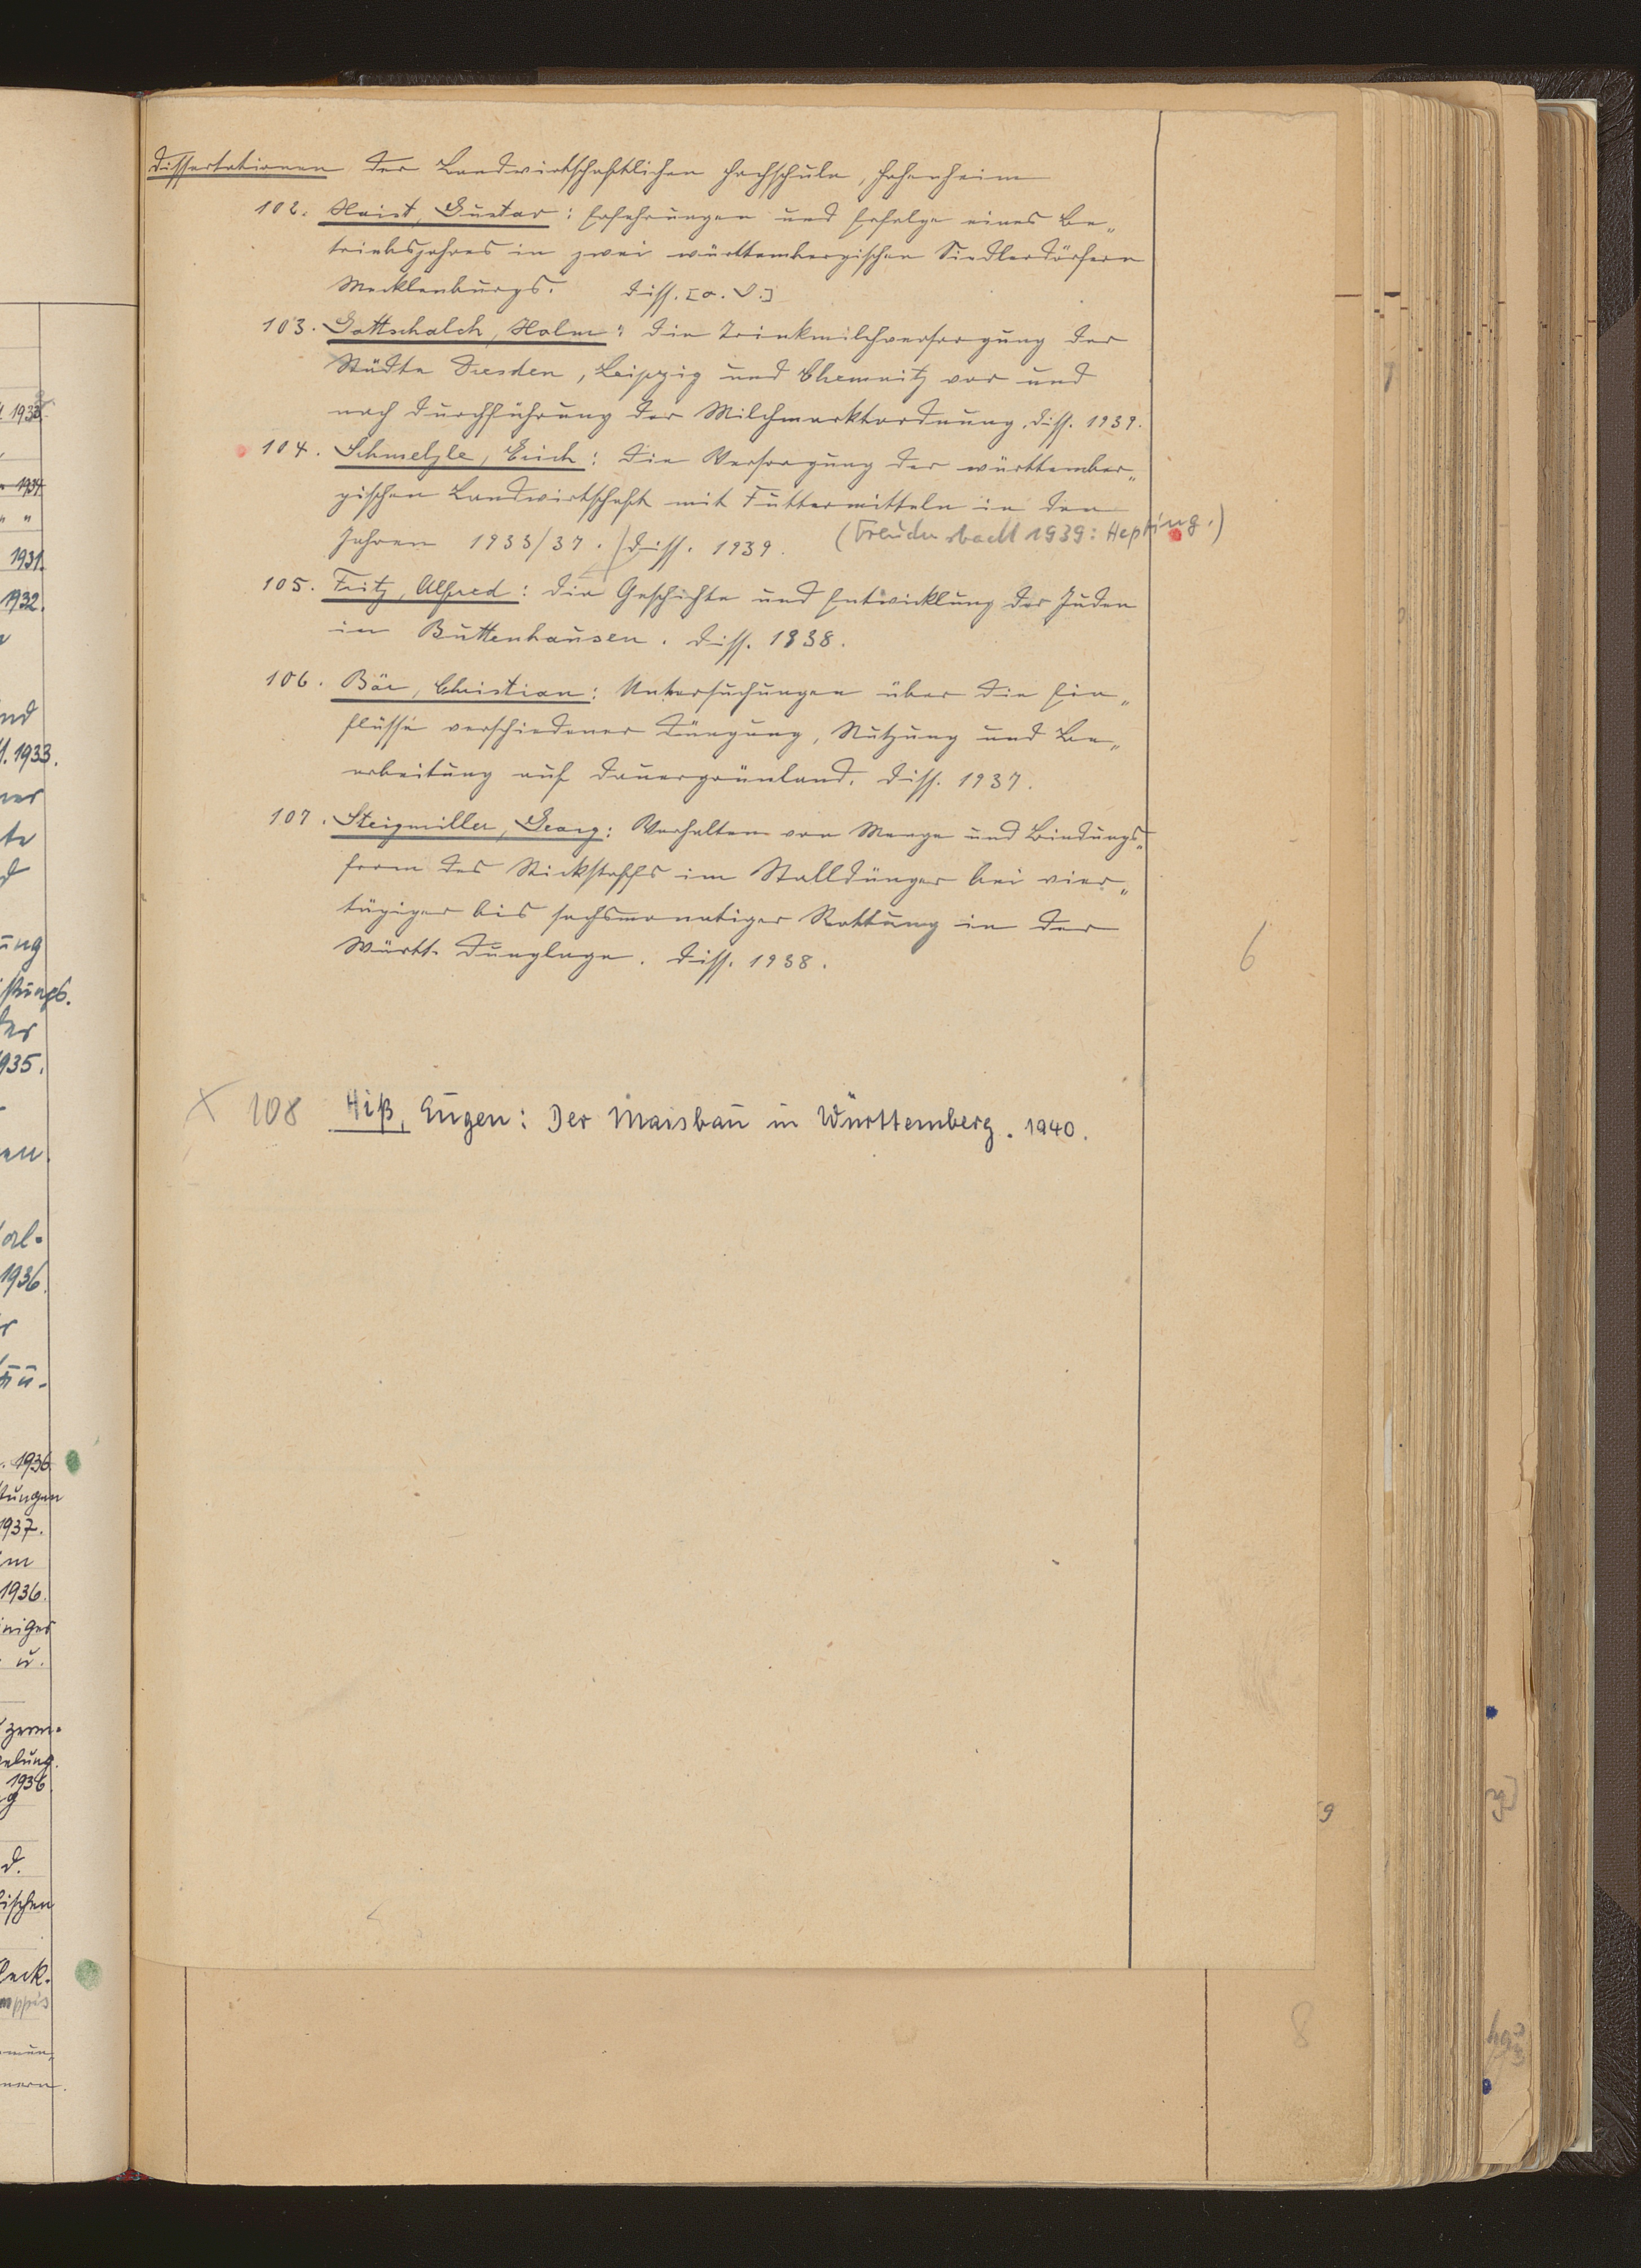 Dissertationen der Landwirtschaftlichen Hochschule, Hohenheim
102. Haist, Gustav: Erfahrungen und Erfolge eines Be„
triebsjahres in zwei württembergischen Siedlerdörfern
Mecklenburgs. Diss. [o. J.]
103. Gottschalch, Holm: Die Trinkmilchversorgung der
Städte Dresden, Leipzig und Chemnitz vor und
nach Durchführung der Milchmarktordnung. Diss. 1939.
104. Schmelzle, Erich: Die Versorgung der württember„
gischen Landwirtschaft mit Futtermitteln in den
Jahren 1933/37. Diss. 1939. (Freudenstadt 1939: Hepting.)
105. Fritz, Alfred: Die Geschichte und Entwicklung der Juden
in Buttenhausen. Diss. 1938.
106. Bär, Christian: Untersuchungen über die Ein„
flüsse verschiedener Düngung, Nutzung und Be„
arbeitung auf Dauergrünland. Diss. 1937.
107. Steigmiller, Georg: Verhalten von Menge und Bindungs„
form des Stickstoffs im Stalldünger bei vier„
tägiger bis sechsmonatiger Rottung in der
Württ. Dunglage. Diss. 1938.
6
x 108 Hiß, Eugen: Der Maisbau in Württemberg. 1940.
8
1931.
1932.
1933.
ung
der
1935.
1936.
1936
1937.
1936.
u.
1936